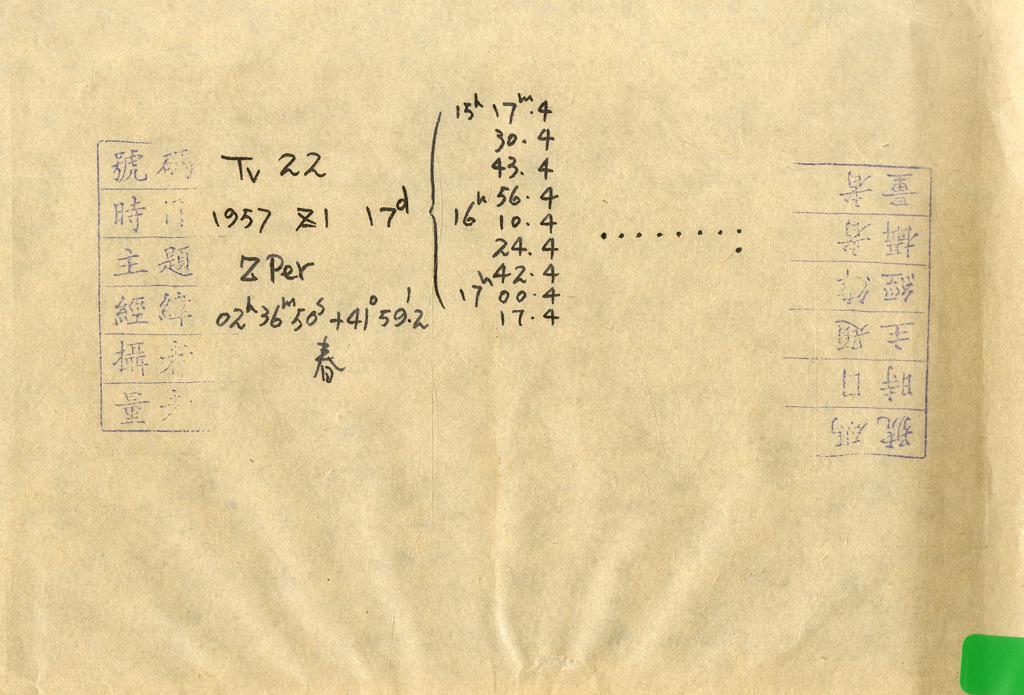 號碼 Tv 22
時日 1957 Z1 17d
主題 Z Per
經緯 02h 36m 50s +41° 59.'2
攝者 春
量者
15h 17m.4
30.4
43.4
56.4
16h 10.4
24.4
42.4
17h 00.4
17.4
. . . . . . . . .
號碼
時日
主題
經緯
攝者
量者